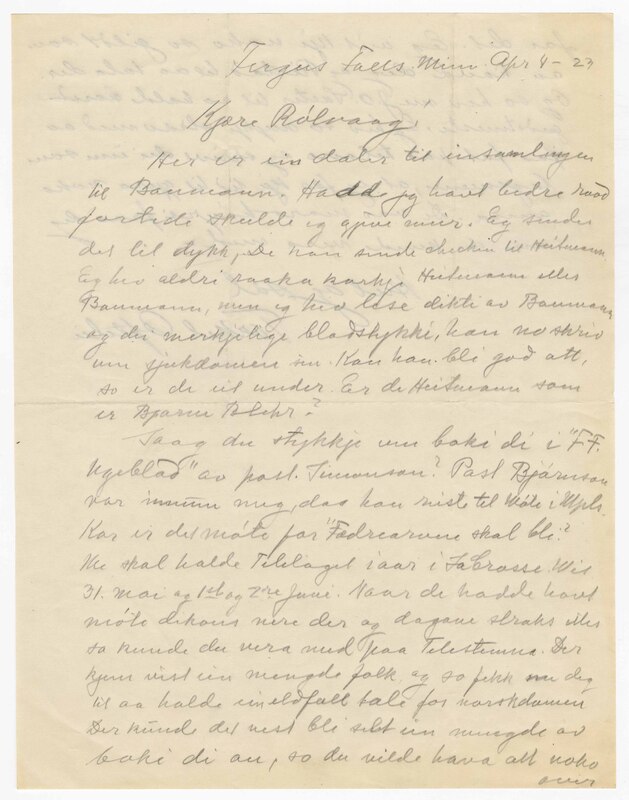 Fergus Falls, Minn. Apr 4 - 23
Kjære Rölvaag,
Her er ein dalar til insamlingen
til Baumann. Hadde jeg havt bedre raad
fortida skulde eg gjeve meir. Eg sender
det til dykk, De kan sende checkin til Heitmann
Eg hev aldri raaka korkje Heitmann eller
Baumann, men eg hev lese dikti av Baumann
og dei merkjelige bladstykki, han no skriv
um sjukdomen sin. Kan han bli god att,
so er de eit under. Er de Heitmann som
er Bjarne Blehr?
Saag du stykkje um boki di i "F.F.
Ugeblad" av past. Simonson? Past Bjørnson
var innum meg, daa han reiste til Møte i Mpls.
Kor er det møte for "Fædrearven skal bli?
Me skal halde Telelaget iaar i La Crosse, Wis
31. mai og 1st og 2re Juni. Naar de hadde havt
møte dikons nere der og dagane straks eller
so kunde du vera med paa Telestemna. Der
kjem vist ein mengde folk, og so fekk me deg
til aa halde ein eldfull tale for norskdomen
Der kunde det vest bli selt ein mengde av
boki di au, so du vilde hava att noko